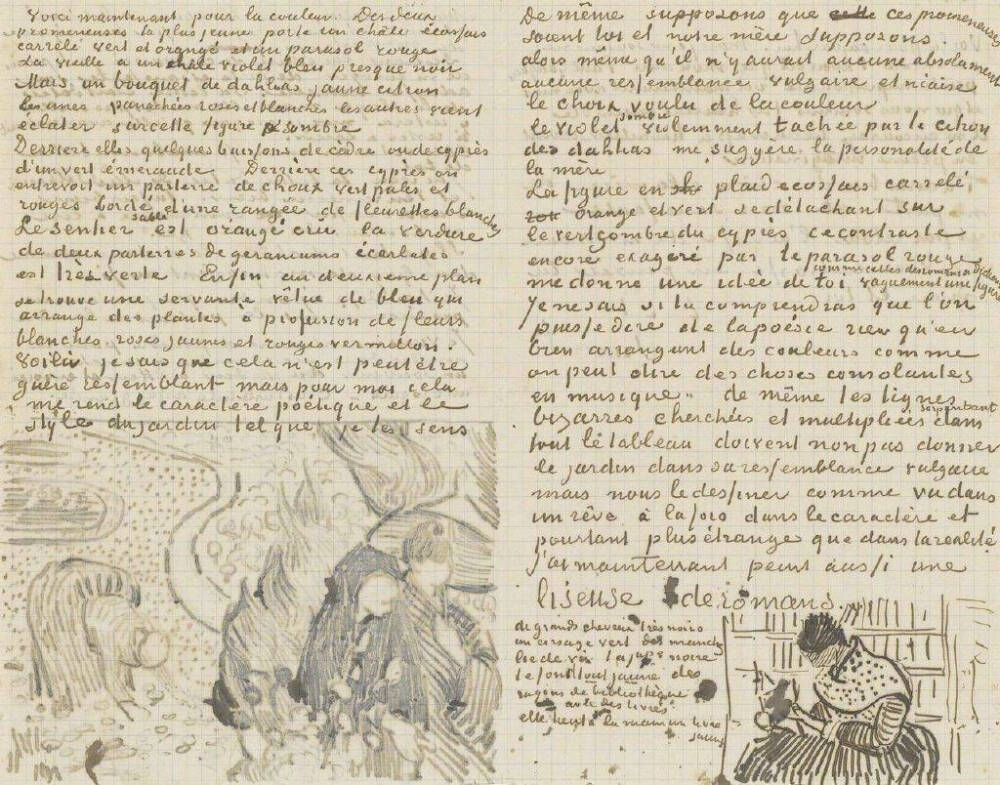 Voici maintenant pour la couleur. Des deux
promeneuses la plus jeune porte un châle écossais
carrelé vert et orangé et un parasol rouge
La vieille a un châle violet bleu presque noir
Mais un bouquet de dahlias jaune citron
les unes panachées roses et blanches les autres vient
éclater sur cette figure sombre
Derrière elles quelques buissons de cèdre ou de cyprès
d'un vert émeraude Derrière ces cyprès on
entrevoit un parterre de choux vert pâles et
rouges bordé d'une rangée de fleurettes blanches
Le sentier sablé est orangé cru la verdure
de deux parterres de geraniums écarlates
est très verte Enfin au deuxième plan
se trouve une servante vêtue de bleu qui
arrange des plantes à profusion de fleurs
blanches roses jaunes et rouges vermillon.
Voilà je sais que cela n'est peutêtre
guère ressemblant mais pour moi cela
me rend le caractère poétique et le
style du jardin tel que je les sens
De même supposons que ces promeneuses
soient toi et notre mère supposons
alors même qu'il n'y aurait aucune absolument
aucune ressemblance vulgaire et niaise
le choix voulu de la couleur
le violet sombre violemment tachée par le citron
des dahlias me suggère la personalité de
la mère
La figure en plaid ecossais carrelé
orange et vert se détachant sur
le vert sombre du cyprès ce contraste
encore exagéré par le parasol rouge
me donne une idée de toi vaguement une figure
comme celles des romans de Dickens
Je ne sais si tu comprendras que l'on
puisse dire de la poesie rien qu'en
bien arrangeant des couleurs comme
on peut dire des choses consolantes
en musique. de même les lignes
bizarres cherchées et multipliées serpentant dans
tout le tableau doivent non pas donner
le jardin dans sa ressemblance vulgaire
mais nous le dessiner comme vu dans
un rêve à la fois dans le caractère et
pourtant plus étrange que dans la realité
J'ai maintenant peint aussi une
liseuse de romans.
de grands cheveux très noirs
un corsage vert des manches
lie de vin la jupe noire
le fond tout jaune des
rayons de bibliothèque
avec des livres
elle tient à la main un livre
jaune